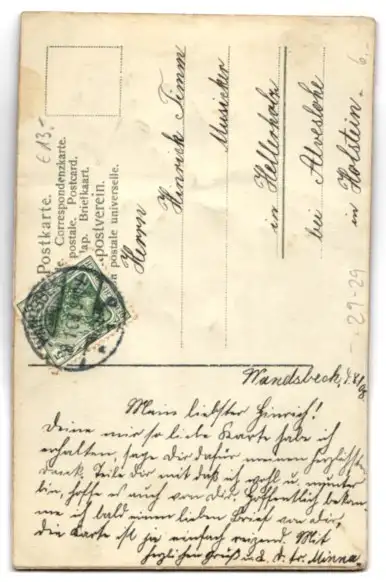 Postkarte.
Correspondenzkarte.
postale. Postcard.
lap. Briefkaart.
postverein.
n postale universelle.
Herrn
Hinrich Timm
Musicker
in Hellerholz
bei Alveslohe
in Holstein.
6.-
€ 13.-
29-29
WANDSBE
Wandsbeck, d.
Mein liebster Hinrich!
Deine mir so liebe Karte habe ich
erhalten, sage Dir dafür meinen herzlichsten
Dank. Teile Dir mit daß ich wohl u. munter
bin, hoffe es auch von Dir. Hoffentlich bekom-
me ich bald einen lieben Brief von dir,
die Karte ist ja einfach reizend. Mit
herzlichen Gruß u. K. D. tr. Minna